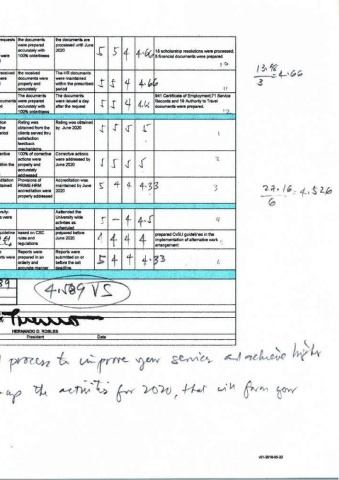 requests the documents were prepared accurately with 100% orderliness the documents are processed until June 2020 5 5 4 4.66 16 scholarship resolutions processed, 5 financial documents were prepared
13.98 / 3 = 4.66
received were the received documents were properly and accurately The HR documents were maintained within the prescribed period 5 5 4 4.66 11
documents were The documents were prepared accurately with 100% orderliness The documents were issued a day after the request 5 5 4 4.66 941 Certificate of Employment, 71 Service Records and 19 Authority to Travel documents were prepared.
Rating was obtained from the clients served thru satisfaction feedback mechanisms Rating was obtained by June 2020 5 5 5 5 1
100% of corrective actions were properly and accurately addressed Corrective actions were addressed by June 2020 5 5 5 5 2
Provisions of PRIME-HRM accreditation were properly addressed Accreditation was maintained by June 2020 5 4 4 4.33 3
27.16 / 6 = 4.526
Attended the University wide activities as scheduled 5 - 4 4.5 4
based on CSC rules and regulations prepared before June 2020 4 4 4 4 prepared CvSU guidelines in the implementation of alternative work arrangement
Reports were prepared in an orderly and accurate manner Reports were submitted on or before the set deadline 5 4 4 4.33 6
4.589 VS
HERNANDO D. ROBLES
President Date
process to improve your service and achieve higher
up the activities for 2020, that will form your
v01-2018-05-22